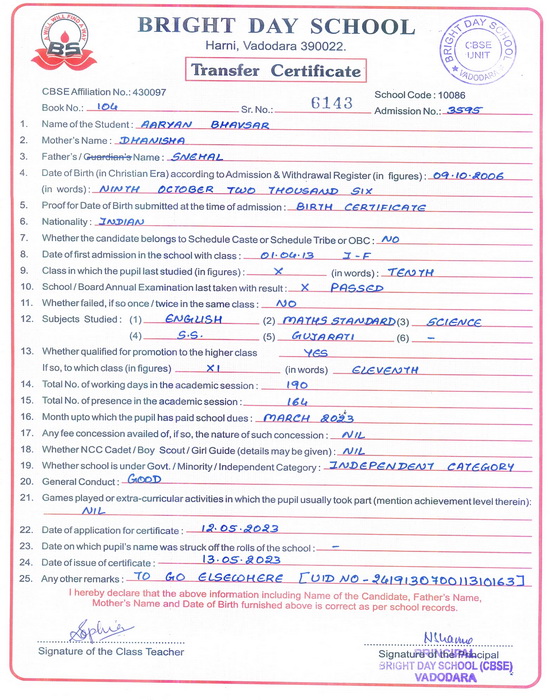 A WILL WILL FIND A WAY
BS
BRIGHT DAY SCHOOL
Harni, Vadodara 390022.
Transfer Certificate
BRIGHT DAY SCHOOL
CBSE
UNIT
VADODARA
CBSE Affiliation No.: 430097 School Code : 10086
Book No.: 104 Sr. No.: 6143 Admission No.: 3595
1. Name of the Student : AARYAN BHAVSAR
2. Mother's Name : DHANISHA
3. Father's / Guardian's Name : SNEHAL
4. Date of Birth (in Christian Era) according to Admission & Withdrawal Register (in figures) : 09.10.2006
(in words) : NINTH OCTOBER TWO THOUSAND SIX
5. Proof for Date of Birth submitted at the time of admission : BIRTH CERTIFICATE
6. Nationality : INDIAN
7. Whether the candidate belongs to Schedule Caste or Schedule Tribe or OBC : NO
8. Date of first admission in the school with class : 01.04.13 I-F
9. Class in which the pupil last studied (in figures) : X (in words) : TENTH
10. School / Board Annual Examination last taken with result : X PASSED
11. Whether failed, if so once / twice in the same class : NO
12. Subjects Studied : (1) ENGLISH (2) MATHS STANDARD (3) SCIENCE
(4) S.S. (5) GUJARATI (6) –
13. Whether qualified for promotion to the higher class YES
If so, to which class (in figures) XI (in words) ELEVENTH
14. Total No. of working days in the academic session : 190
15. Total No. of presence in the academic session : 164
16. Month upto which the pupil has paid school dues : MARCH 2023
17. Any fee concession availed of, if so, the nature of such concession : NIL
18. Whether NCC Cadet / Boy Scout / Girl Guide (details may be given) : NIL
19. Whether school is under Govt. / Minority / Independent Category : INDEPENDENT CATEGORY
20. General Conduct : GOOD
21. Games played or extra-curricular activities in which the pupil usually took part (mention achievement level therein):
NIL
22. Date of application for certificate : 12.05.2023
23. Date on which pupil's name was struck off the rolls of the school : –
24. Date of issue of certificate : 13.05.2023
25. Any other remarks : TO GO ELSEWHERE [UID NO - 241913070011310163]
I hereby declare that the above information including Name of the Candidate, Father's Name,
Mother's Name and Date of Birth furnished above is correct as per school records.
Sophia
Signature of the Class Teacher Signature of the Principal
PRINCIPAL
BRIGHT DAY SCHOOL (CBSE)
VADODARA